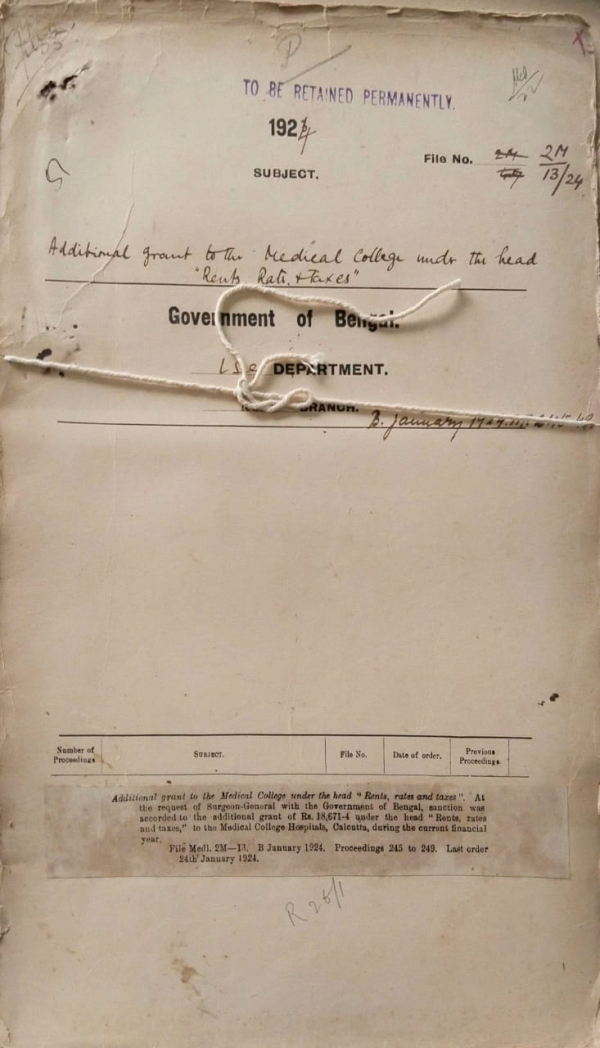 TO BE RETAINED PERMANENTLY.
1924
File No. 2M
13/24
SUBJECT.
Additional grant to the Medical College under the head
"Rents Rates & taxes"
Government of Bengal.
DEPARTMENT.
BRANCH.
B. January
Number of Proceedings
SUBJECT.
File No.
Date of order.
Previous Proceedings.
Additional grant to the Medical College under the head "Rents, rates and taxes". At
the request of Surgeon-General with the Government of Bengal, sanction was
accorded to the additional grant of Rs. 18,671-4 under the head "Rents, rates
and taxes," to the Medical College Hospitals, Calcutta, during the current financial
year.
File Medl. 2M—13. B January 1924. Proceedings 245 to 249. Last order
24th January 1924.
R 26/1